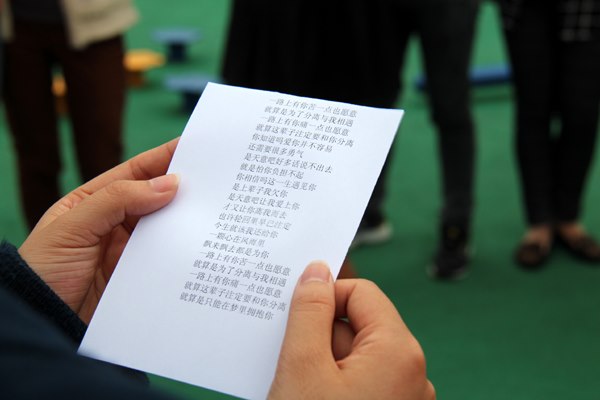 一路上有你苦一点也愿意
就算是为了分离与我相遇
一路上有你痛一点也愿意
就算这辈子注定要和你分离
你知道吗爱你并不容易
还需要很多勇气
是天意吧好多话说不出去
就是怕你负担不起
你相信吗这一生遇见你
是上辈子我欠你
是天意吧让我爱上你
才又让你离我而去
也许轮回里早已注定
今生就该我还给你
一颗心在风雨里
飘来飘去都是为你
一路上有你苦一点也愿意
就算是为了分离与我相遇
一路上有你痛一点也愿意
就算这辈子注定要和你分离
就算是只能在梦里拥抱你